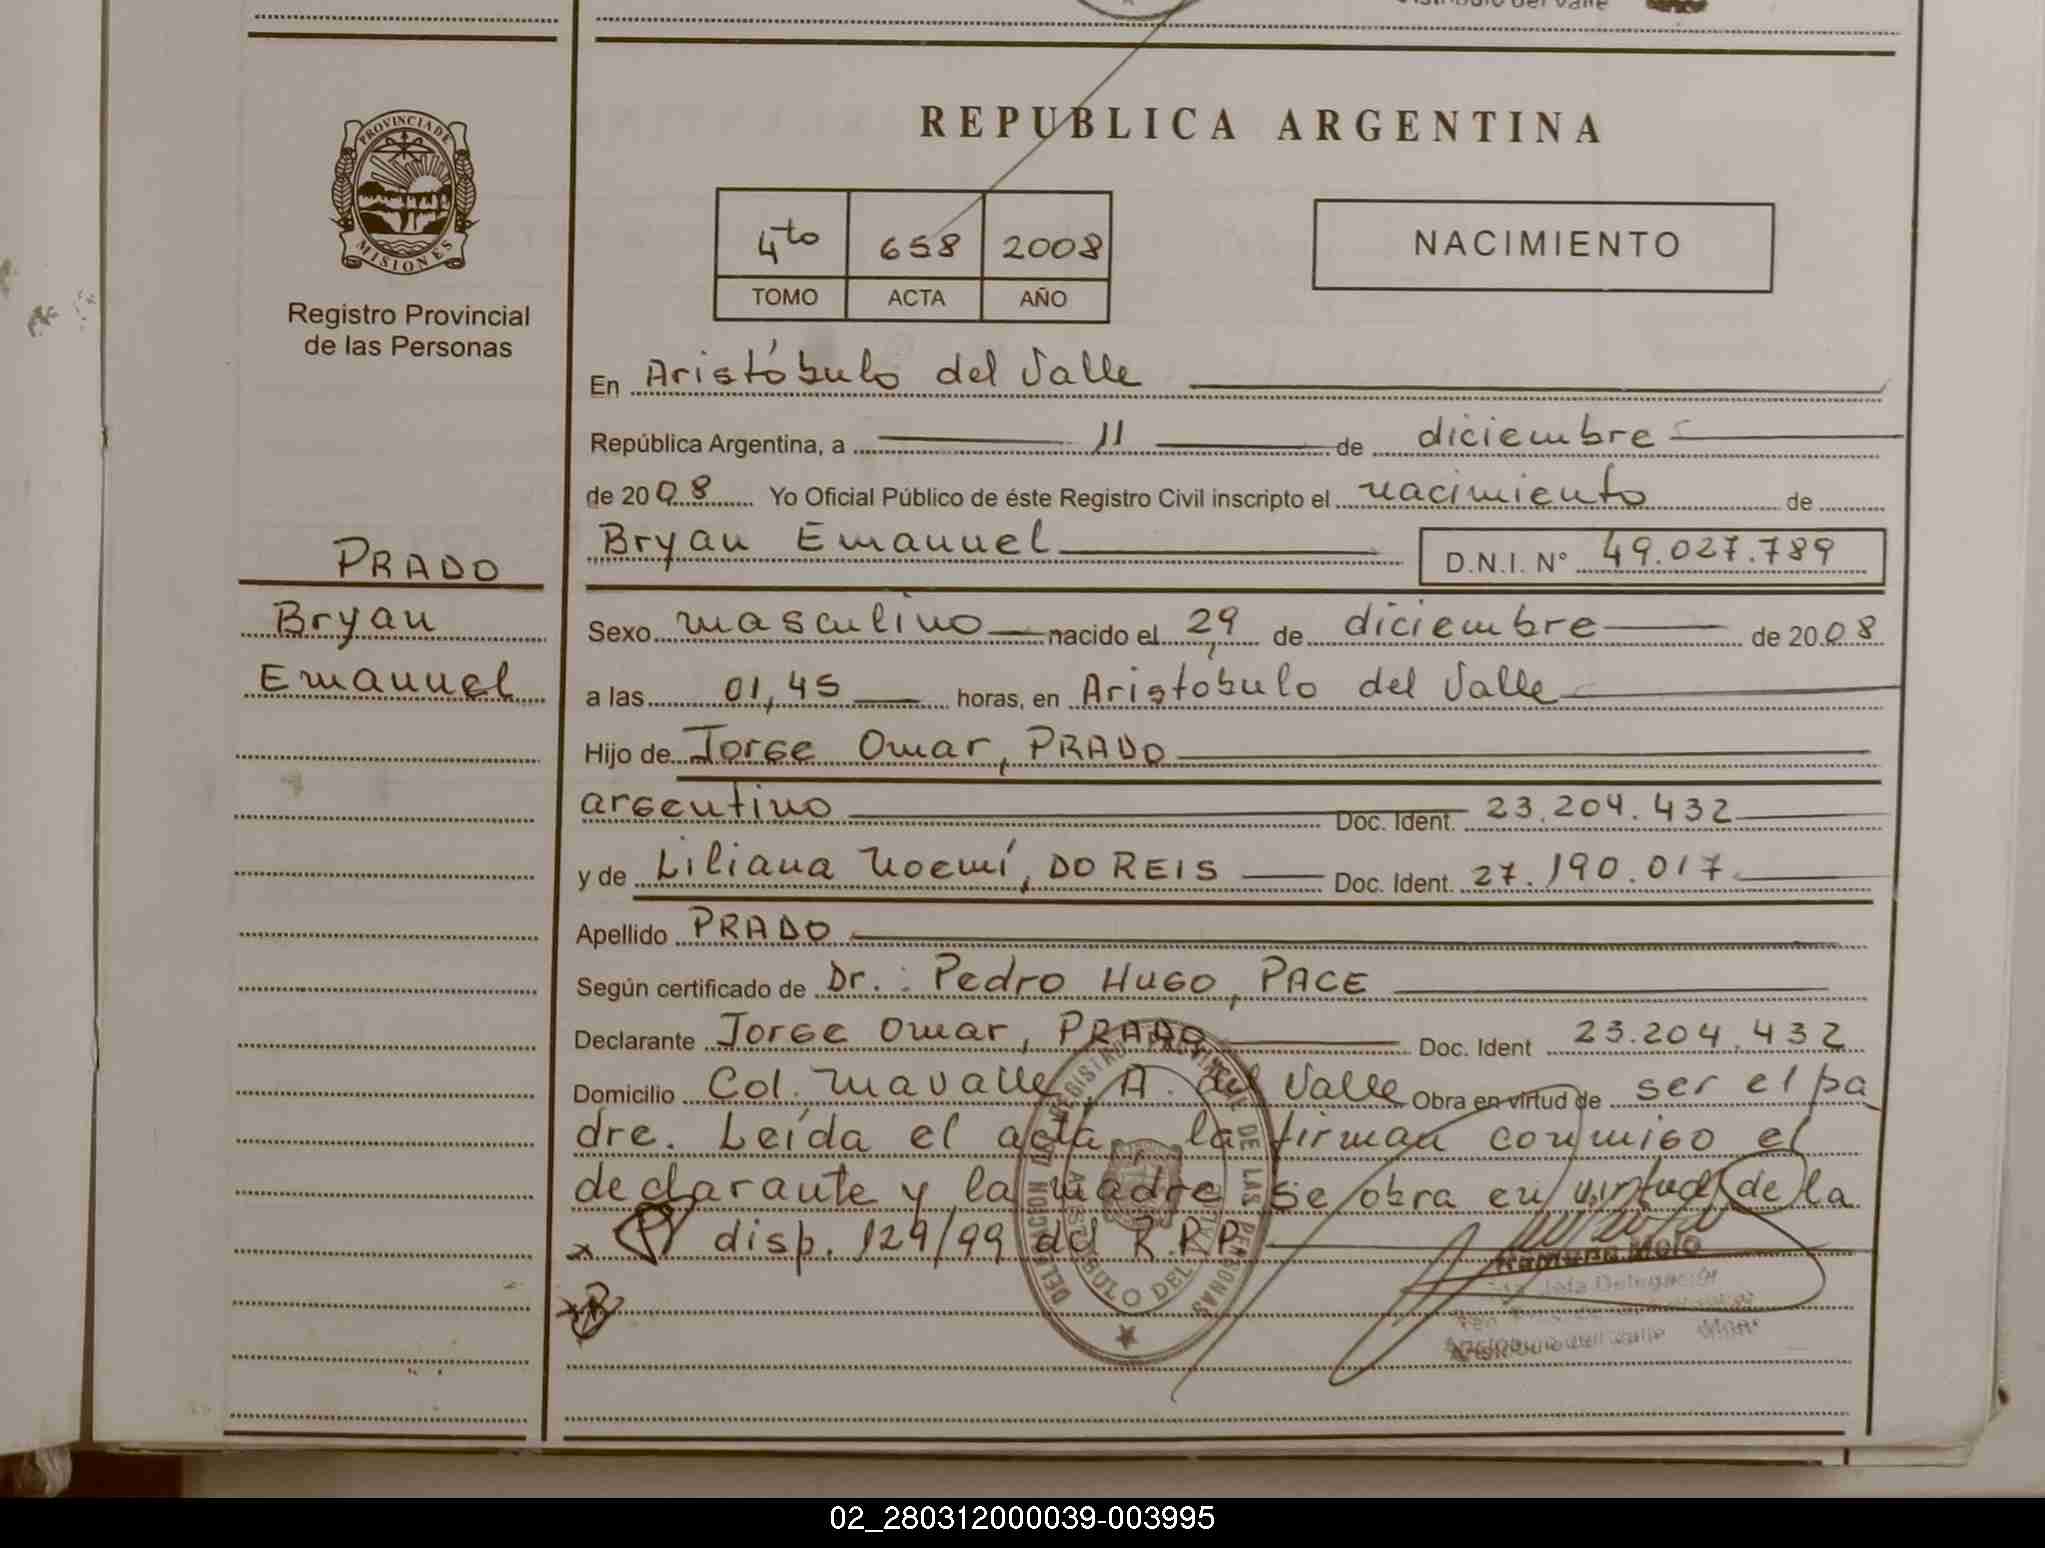 PROVINCIA DE
MISIONES
Registro Provincial
de las Personas
REPUBLICA ARGENTINA
4to 658 2008
TOMO ACTA AÑO
NACIMIENTO
En Aristóbulo del Valle
República Argentina, a 11 de diciembre
de 2008 Yo Oficial Público de éste Registro Civil inscripto el nacimiento de
PRADO
Bryan
Emanuel
Bryan Emanuel D.N.I. N° 49.027.789
Sexo masculino nacido el 29 de diciembre de 2008
a las 01,45 horas, en Aristóbulo del Valle
Hijo de Jorge Omar, PRADO
argentino Doc. Ident. 23.204.432
y de Liliana Noemí, DO REIS Doc. Ident. 27.190.017
Apellido PRADO
Según certificado de Dr.: Pedro Hugo, PACE
Declarante Jorge Omar, PRADO Doc. Ident 23.204.432
Domicilio Col. Mavalle, A. del Valle Obra en virtud de ser el pa
dre. Leída el acta, la firman conmigo el
declarante y la madre se obra en virtud de la
x disp. 129/99 del R.P.P.
Ramona Melo
02_280312000039-003995